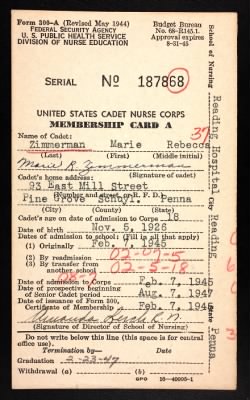 Form 300-A (Revised May 1944)
FEDERAL SECURITY AGENCY
U. S. PUBLIC HEALTH SERVICE
DIVISION OF NURSE EDUCATION
Budget Bureau
No. 68-R145.1.
Approval expires
8-31-45
SERIAL No 187868
UNITED STATES CADET NURSE CORPS
MEMBERSHIP CARD A
Name of Cadet:
Zimmerman Marie Rebecca
(Last) (First) (Middle initial)
Marie R. Zimmerman
(Signature of cadet)
Cadet's home address:
93 East Mill Street
(Number and street or R. F. D.)
Pine Grove Schuyl. Penna
(City) (County) (State)
Cadet's age on date of admission to Corps 18
Date of birth Nov. 5, 1926
Dates of admission to school: (Fill in all that apply)
(1) Originally Feb. 7, 1945
(2) By readmission
(3) By transfer from
another school
Date of admission to Corps Feb. 7, 1945
Date of prospective beginning
of Senior Cadet period Aug. 7, 1947
Date of issuance of Form 300,
Certificate of Membership Feb. 1945
(Signature of Director of School of Nursing)
Do not write below this line (this space for central
office use).
Termination by— Date
Graduation
Withdrawal (a) (b)
GPO 16-40005-1
School of Nursing Reading Hospital
City Reading
State Penna
37